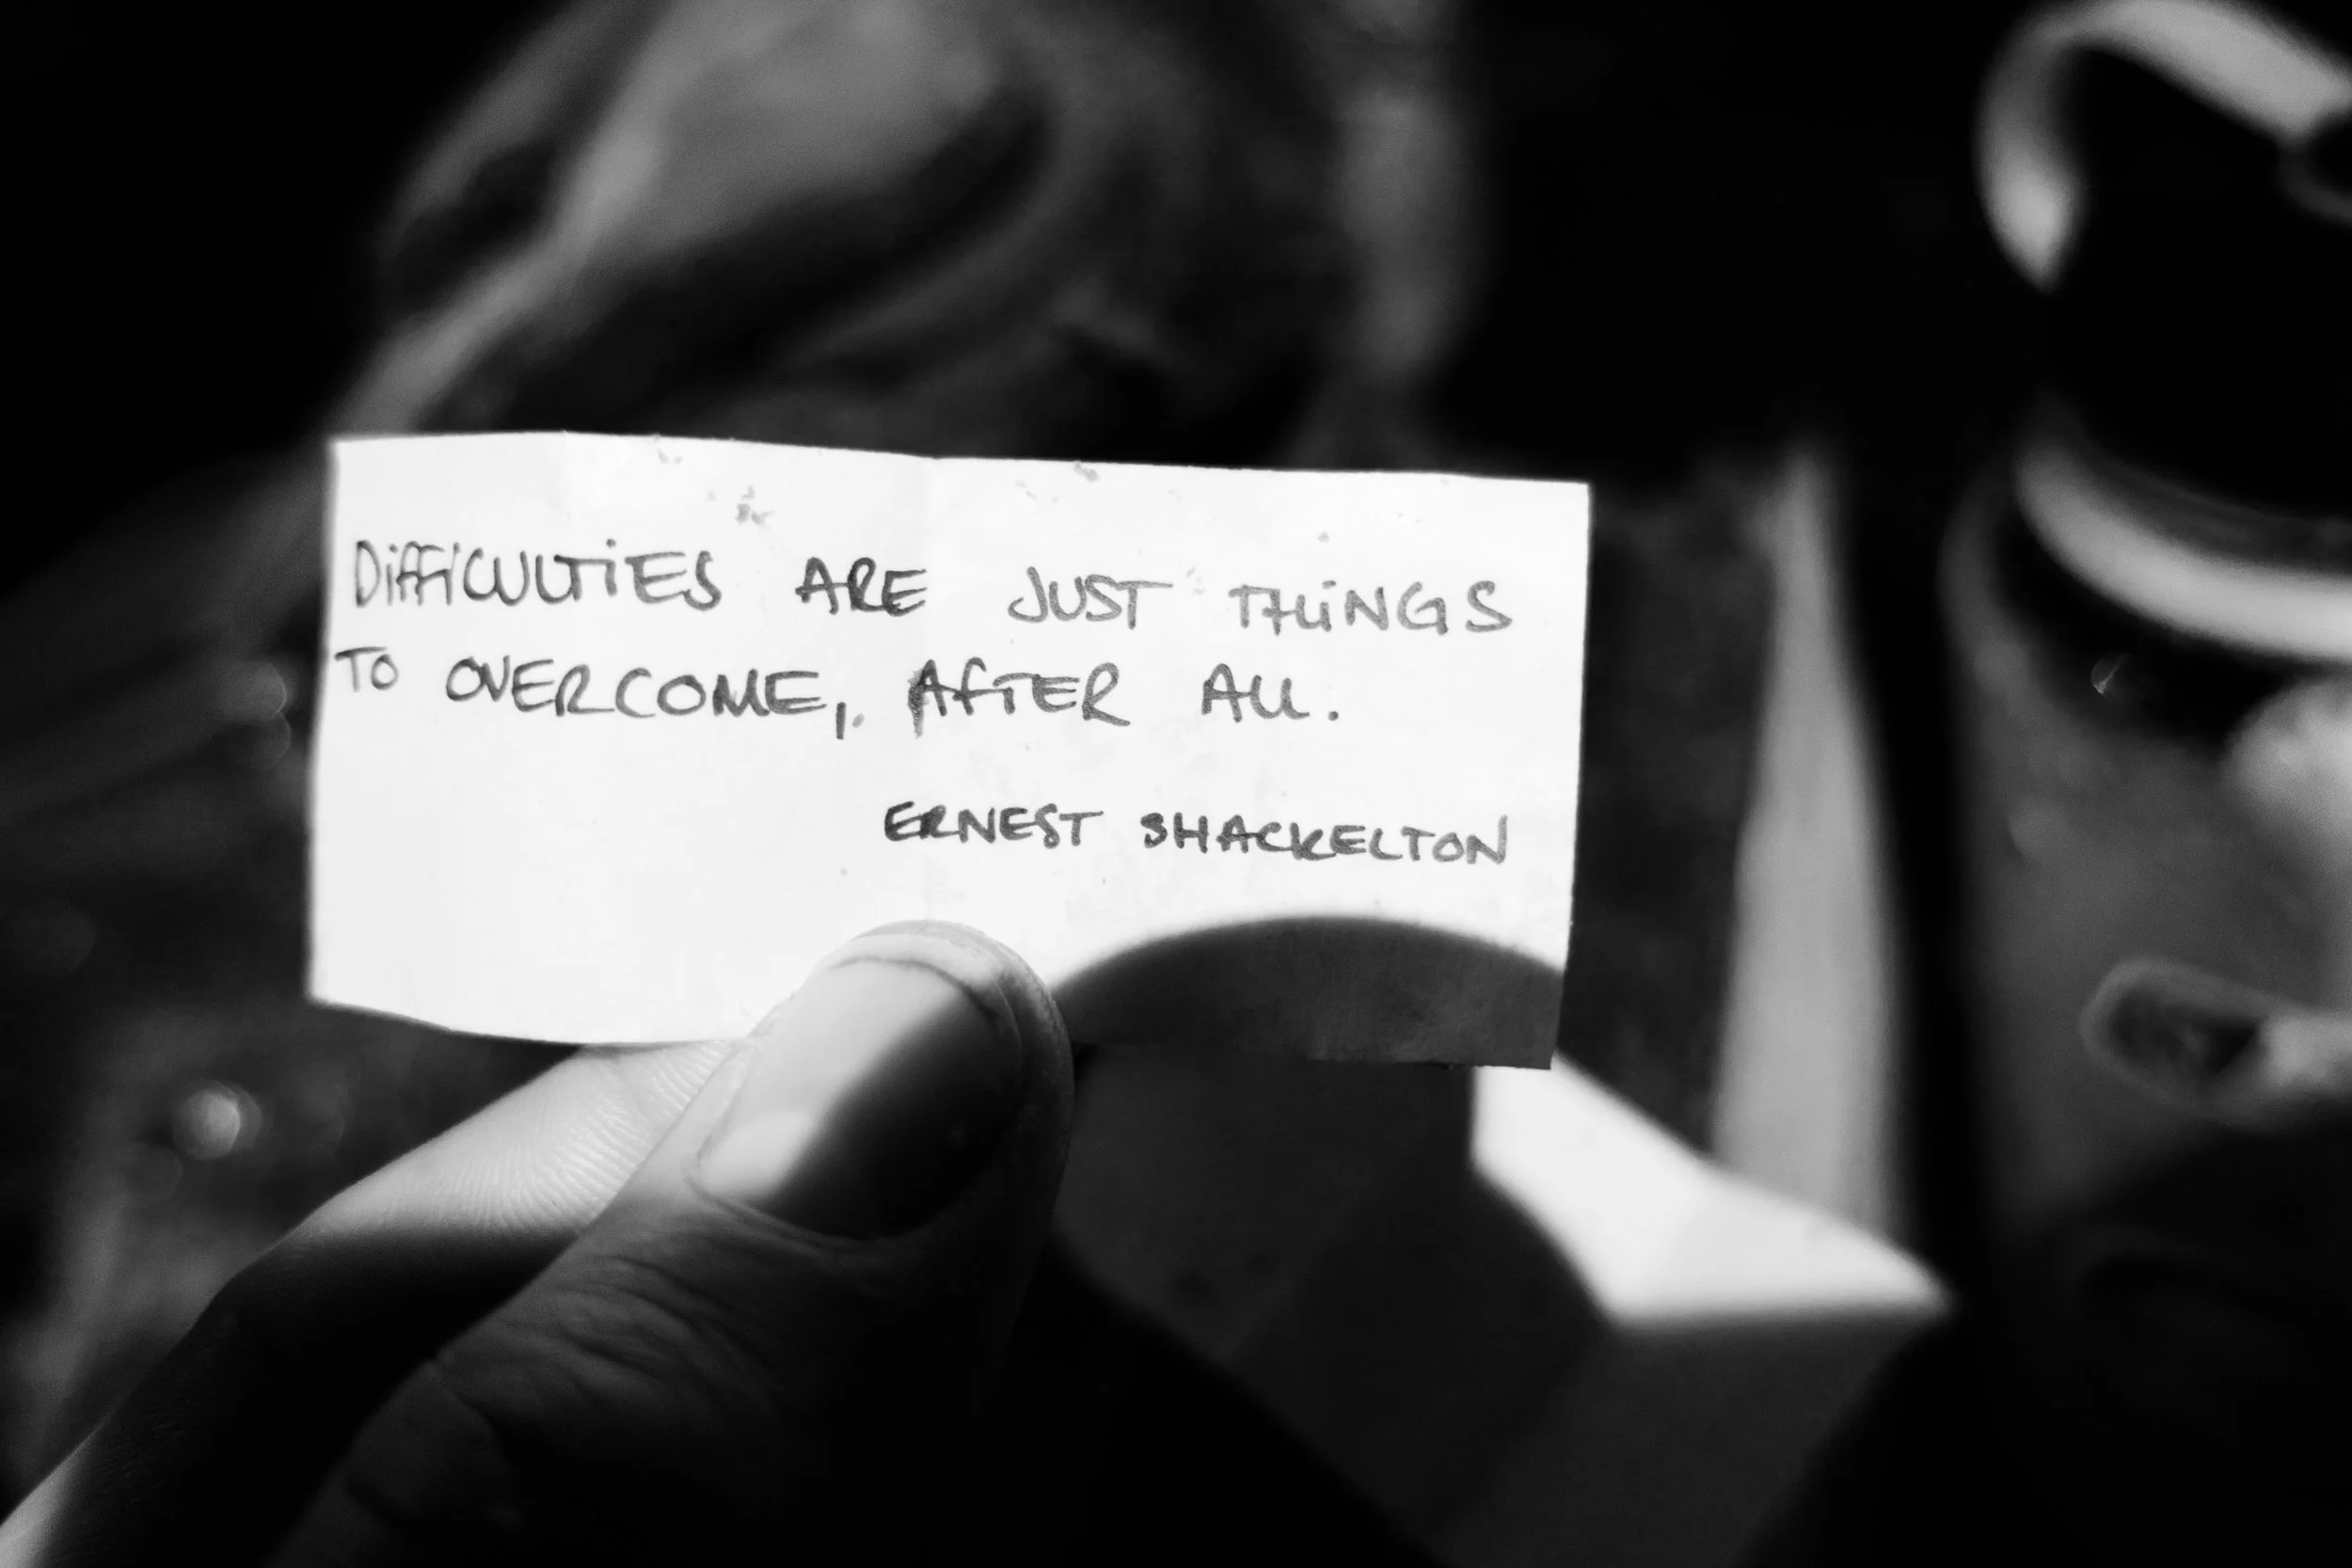 DiffiCULTiES ARE JUST THiNGS
TO OVERCOME,. AfTER ALL.
ERNEST SHACKELTON